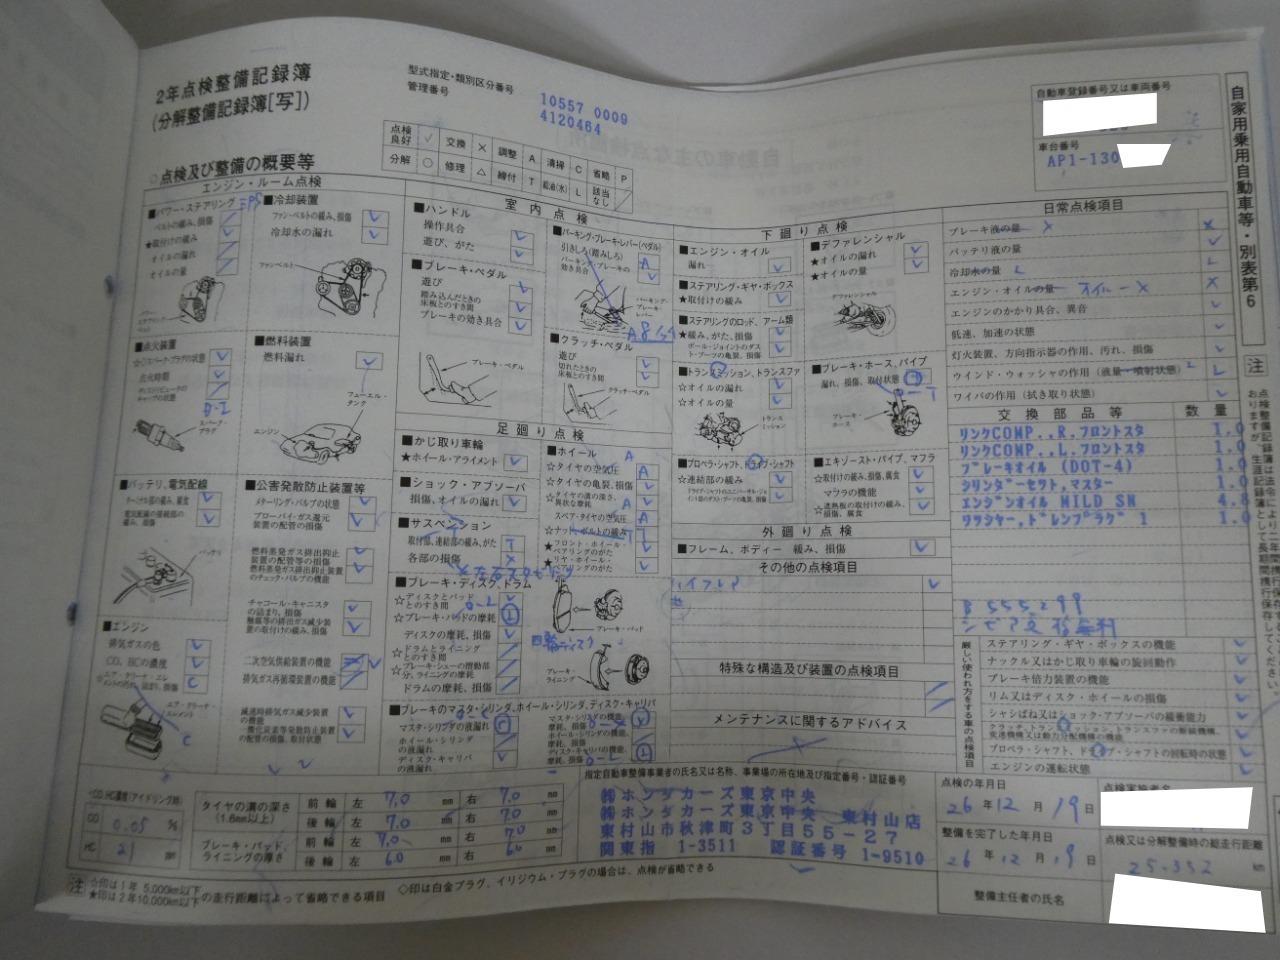 2年点検整備記録簿
(分解整備記録簿[写])
型式指定・類別区分番号
10557 0009
管理番号
4120464
点検良好 ✓ 交換 × 調整 A 清掃 C 省略 P
分解 ○ 修理 △ 締付 T 給油(水) L 該当なし /
自動車登録番号又は車両番号
車台番号
AP1-130
自家用乗用自動車等・別表第6
○点検及び整備の概要等
エンジン・ルーム点検
■パワー・ステアリング
EPS
ベルトの緩み、損傷
★取付けの緩み
オイルの漏れ
オイルの量
■冷却装置
ファン・ベルトの緩み、損傷
冷却水の漏れ
ファンベルト
■点火装置
☆◇スパーク・プラグの状態
点火時期
ディストリビュータのキャップの状態
D-I
スパーク・プラグ
■燃料装置
燃料漏れ
フューエル・タンク
エンジン
■バッテリ、電気配線
ターミナル部の緩み、腐食
電気配線の接続部の緩み、損傷
バッテリ
■公害発散防止装置等
メターリング・バルブの状態
ブローバイ・ガス還元装置の配管の損傷
燃料蒸発ガス排出抑止装置の配管等の損傷
燃料蒸発ガス排出抑止装置のチェック・バルブの機能
チャコール・キャニスタの詰まり、損傷
触媒等の排出ガス減少装置の取付けの緩み、損傷
二次空気供給装置の機能
排気ガス再循環装置の機能
減速時排気ガス減少装置の機能
一酸化炭素等発散防止装置の配管の損傷、取付状態
■エンジン
排気ガスの色
CO、HCの濃度
エア・クリーナ・エレメントの汚れ、詰まり、損傷
エア・クリーナ・エレメント
室内点検
■ハンドル
操作具合
遊び、がた
■ブレーキ・ペダル
遊び
踏み込んだときの床板とのすき間
ブレーキの効き具合
ブレーキ・ペダル
■パーキング・ブレーキ・レバー(ペダル)
引きしろ(踏みしろ)
パーキング・ブレーキの効き具合
パーキング・ブレーキ・レバー
■クラッチ・ペダル
遊び
切れたときの床板とのすき間
クラッチ・ペダル
足廻り点検
■かじ取り車輪
★ホイール・アライメント
■ショック・アブソーバ
損傷、オイルの漏れ
■サスペンション
取付部、連結部の緩み、がた
各部の損傷
■ホイール
☆タイヤの空気圧
☆タイヤの亀裂、損傷
☆タイヤの溝の深さ、異状な摩耗
スペア・タイヤの空気圧
☆ナット、ボルトの緩み
★フロント・ホイール・ベアリングのがた
★リヤ・ホイール・ベアリングのがた
■ブレーキ・ディスク、ドラム
☆ディスクとパッドとのすき間
☆ブレーキ・パッドの摩耗
ディスクの摩耗、損傷
☆ドラムとライニングとのすき間
☆ブレーキ・シューの摺動部分、ライニングの摩耗
ドラムの摩耗、損傷
四輪ディスク
ブレーキ・パッド
ブレーキ・ライニング
■ブレーキのマスタ・シリンダ、ホイール・シリンダ、ディスク・キャリパ
マスタ・シリンダの液漏れ
ホイール・シリンダの液漏れ
ディスク・キャリパの液漏れ
マスタ・シリンダの機能、摩耗、損傷
ホイール・シリンダの機能、摩耗、損傷
ディスク・キャリパの機能、摩耗、損傷
下廻り点検
■エンジン・オイル
漏れ
■ステアリング・ギヤ・ボックス
★取付けの緩み
■ステアリングのロッド、アーム類
★緩み、がた、損傷
ボール・ジョイントのダスト・ブーツの亀裂、損傷
■トランスミッション、トランスファ
☆オイルの漏れ
☆オイルの量
トランスミッション
■プロペラ・シャフト、ドライブ・シャフト
☆連結部の緩み
ドライブ・シャフトのユニバーサル・ジョイント部のダスト・ブーツの亀裂、損傷
■デファレンシャル
★オイルの漏れ
★オイルの量
デファレンシャル
■ブレーキ・ホース、パイプ
漏れ、損傷、取付状態
ブレーキ・ホース
■エキゾースト・パイプ、マフラ
☆取付けの緩み、損傷、腐食
マフラの機能
☆遮熱板の取付けの緩み、損傷、腐食
外廻り点検
■フレーム、ボディー 緩み、損傷
その他の点検項目
特殊な構造及び装置の点検項目
メンテナンスに関するアドバイス
日常点検項目
ブレーキ液の量 ×
バッテリ液の量
冷却水の量 L
エンジン・オイルの量 オイル-×
エンジンのかかり具合、異音
低速、加速の状態
灯火装置、方向指示器の作用、汚れ、損傷
ウインド・ウォッシャの作用(液量・噴射状態) L
ワイパの作用(拭き取り状態)
交換部品等 数量
リンクCOMP.,R.フロントスタ 1.0
リンクCOMP.,L.フロントスタ 1.0
ブレーキオイル (DOT-4) 1.0
シリンダーセット,マスター 1.0
エンジンオイル MILD SN 4.8
ワッシャー,ドレンプラグ 1 1.0
厳しい使われ方をする車の点検項目
ステアリング・ギヤ・ボックスの機能
ナックル又はかじ取り車輪の旋回動作
ブレーキ倍力装置の機能
リム又はディスク・ホイールの損傷
シャシばね又はショック・アブソーバの緩衝能力
プロペラ・シャフト、ドライブ・シャフトの回転時の状態
エンジンの運転状態
CO,HC濃度(アイドリング時)
CO 0.05 %
HC 21
タイヤの溝の深さ(1.6mm以上)
前輪 左 7.0 mm 右 7.0 mm
後輪 左 7.0 mm 右 7.0 mm
ブレーキ・パッド、ライニングの厚さ
前輪 左 7.0 mm 右 7.0 mm
後輪 左 6.0 mm 右 6.0 mm
指定自動車整備事業者の氏名又は名称、事業場の所在地及び指定番号・認証番号
㈱ホンダカーズ東京中央
㈱ホンダカーズ東京中央 東村山店
東村山市秋津町3丁目55-27
関東指 1-3511 認証番号 1-9510
点検の年月日
26年12月19日
整備を完了した年月日
26年12月19日
整備主任者の氏名
点検実施者名
点検又は分解整備時の総走行距離
25,352 km
注 ☆印は1年 5,000km以下
★印は2年10,000km以下の走行距離によって省略できる項目
◇印は白金プラグ、イリジウム・プラグの場合は、点検が省略できる